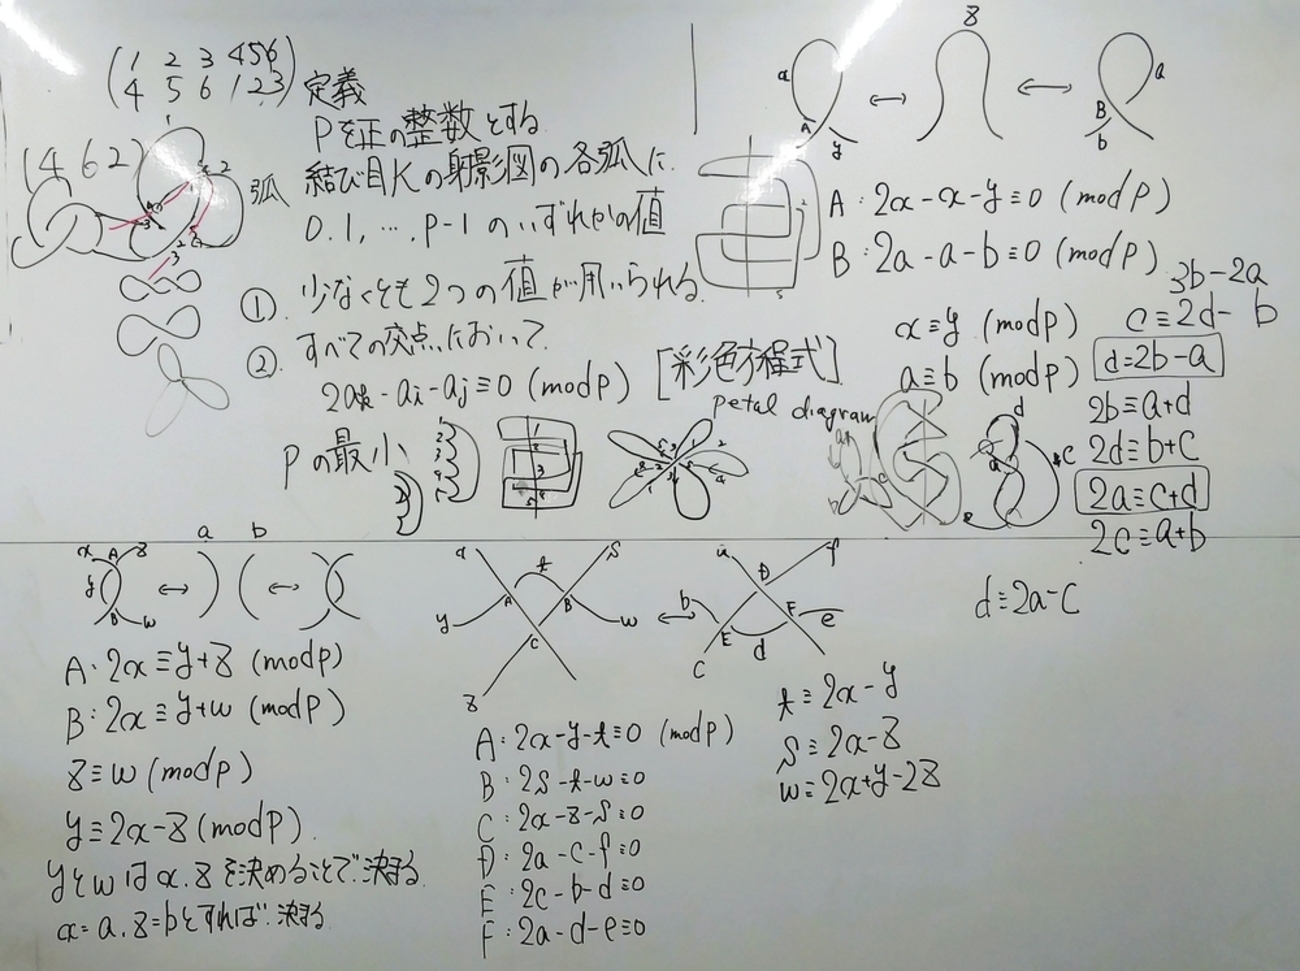 (1 2 3 4 5 6
4 5 6 1 2 3)
(4 6 2)
定義
Pを正の整数とする
結び目Kの射影図の各弧に
弧
0.1,….P-1のいずれかの値
①. 少なくとも2つの値が用いられる.
②. すべての交点において.
2ak-ai-aj≡0 (mod P)
[彩色方程式]
Pの最小
petal diagram
a
A
y
8
a
B
b
A:2x-x-y≡0 (mod P)
B:2a-a-b≡0 (mod P)
x≡y (mod P)
a≡b (mod P)
3b-2a
c≡2d-b
d=2b-a
2b≡a+d
2d≡b+c
2a≡c+d
2c≡a+b
d≡2a-c
x A 8
y
B w
a b
A:2x≡y+8 (mod P)
B:2x≡y+w (mod P)
8≡w (mod P)
y≡2x-8 (mod P).
yとwはx.8を決めることで決まる.
x=a.8=bとすれば決まる
t
S
y
A
B
w
C
8
D
f
b
E
F
e
d
C
A:2x-y-t≡0 (mod P)
B:2S-t-w≡0
C:2x-8-S≡0
D:2a-c-f≡0
E:2c-b-d≡0
F:2a-d-e≡0
t≡2x-y
S≡2x-8
w≡2x+y-28